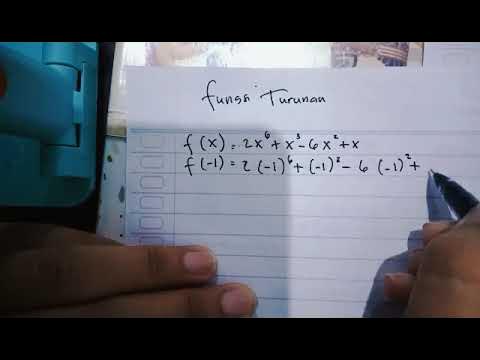 fungsi Turunan
f(x) = 2x⁶ + x³ - 6x² + x
f(-1) = 2 (-1)⁶ + (-1)³ - 6 (-1)² +